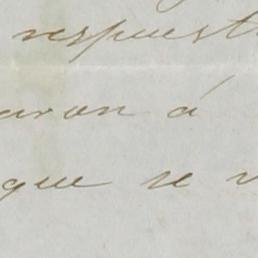 respuest
aron á
que se v